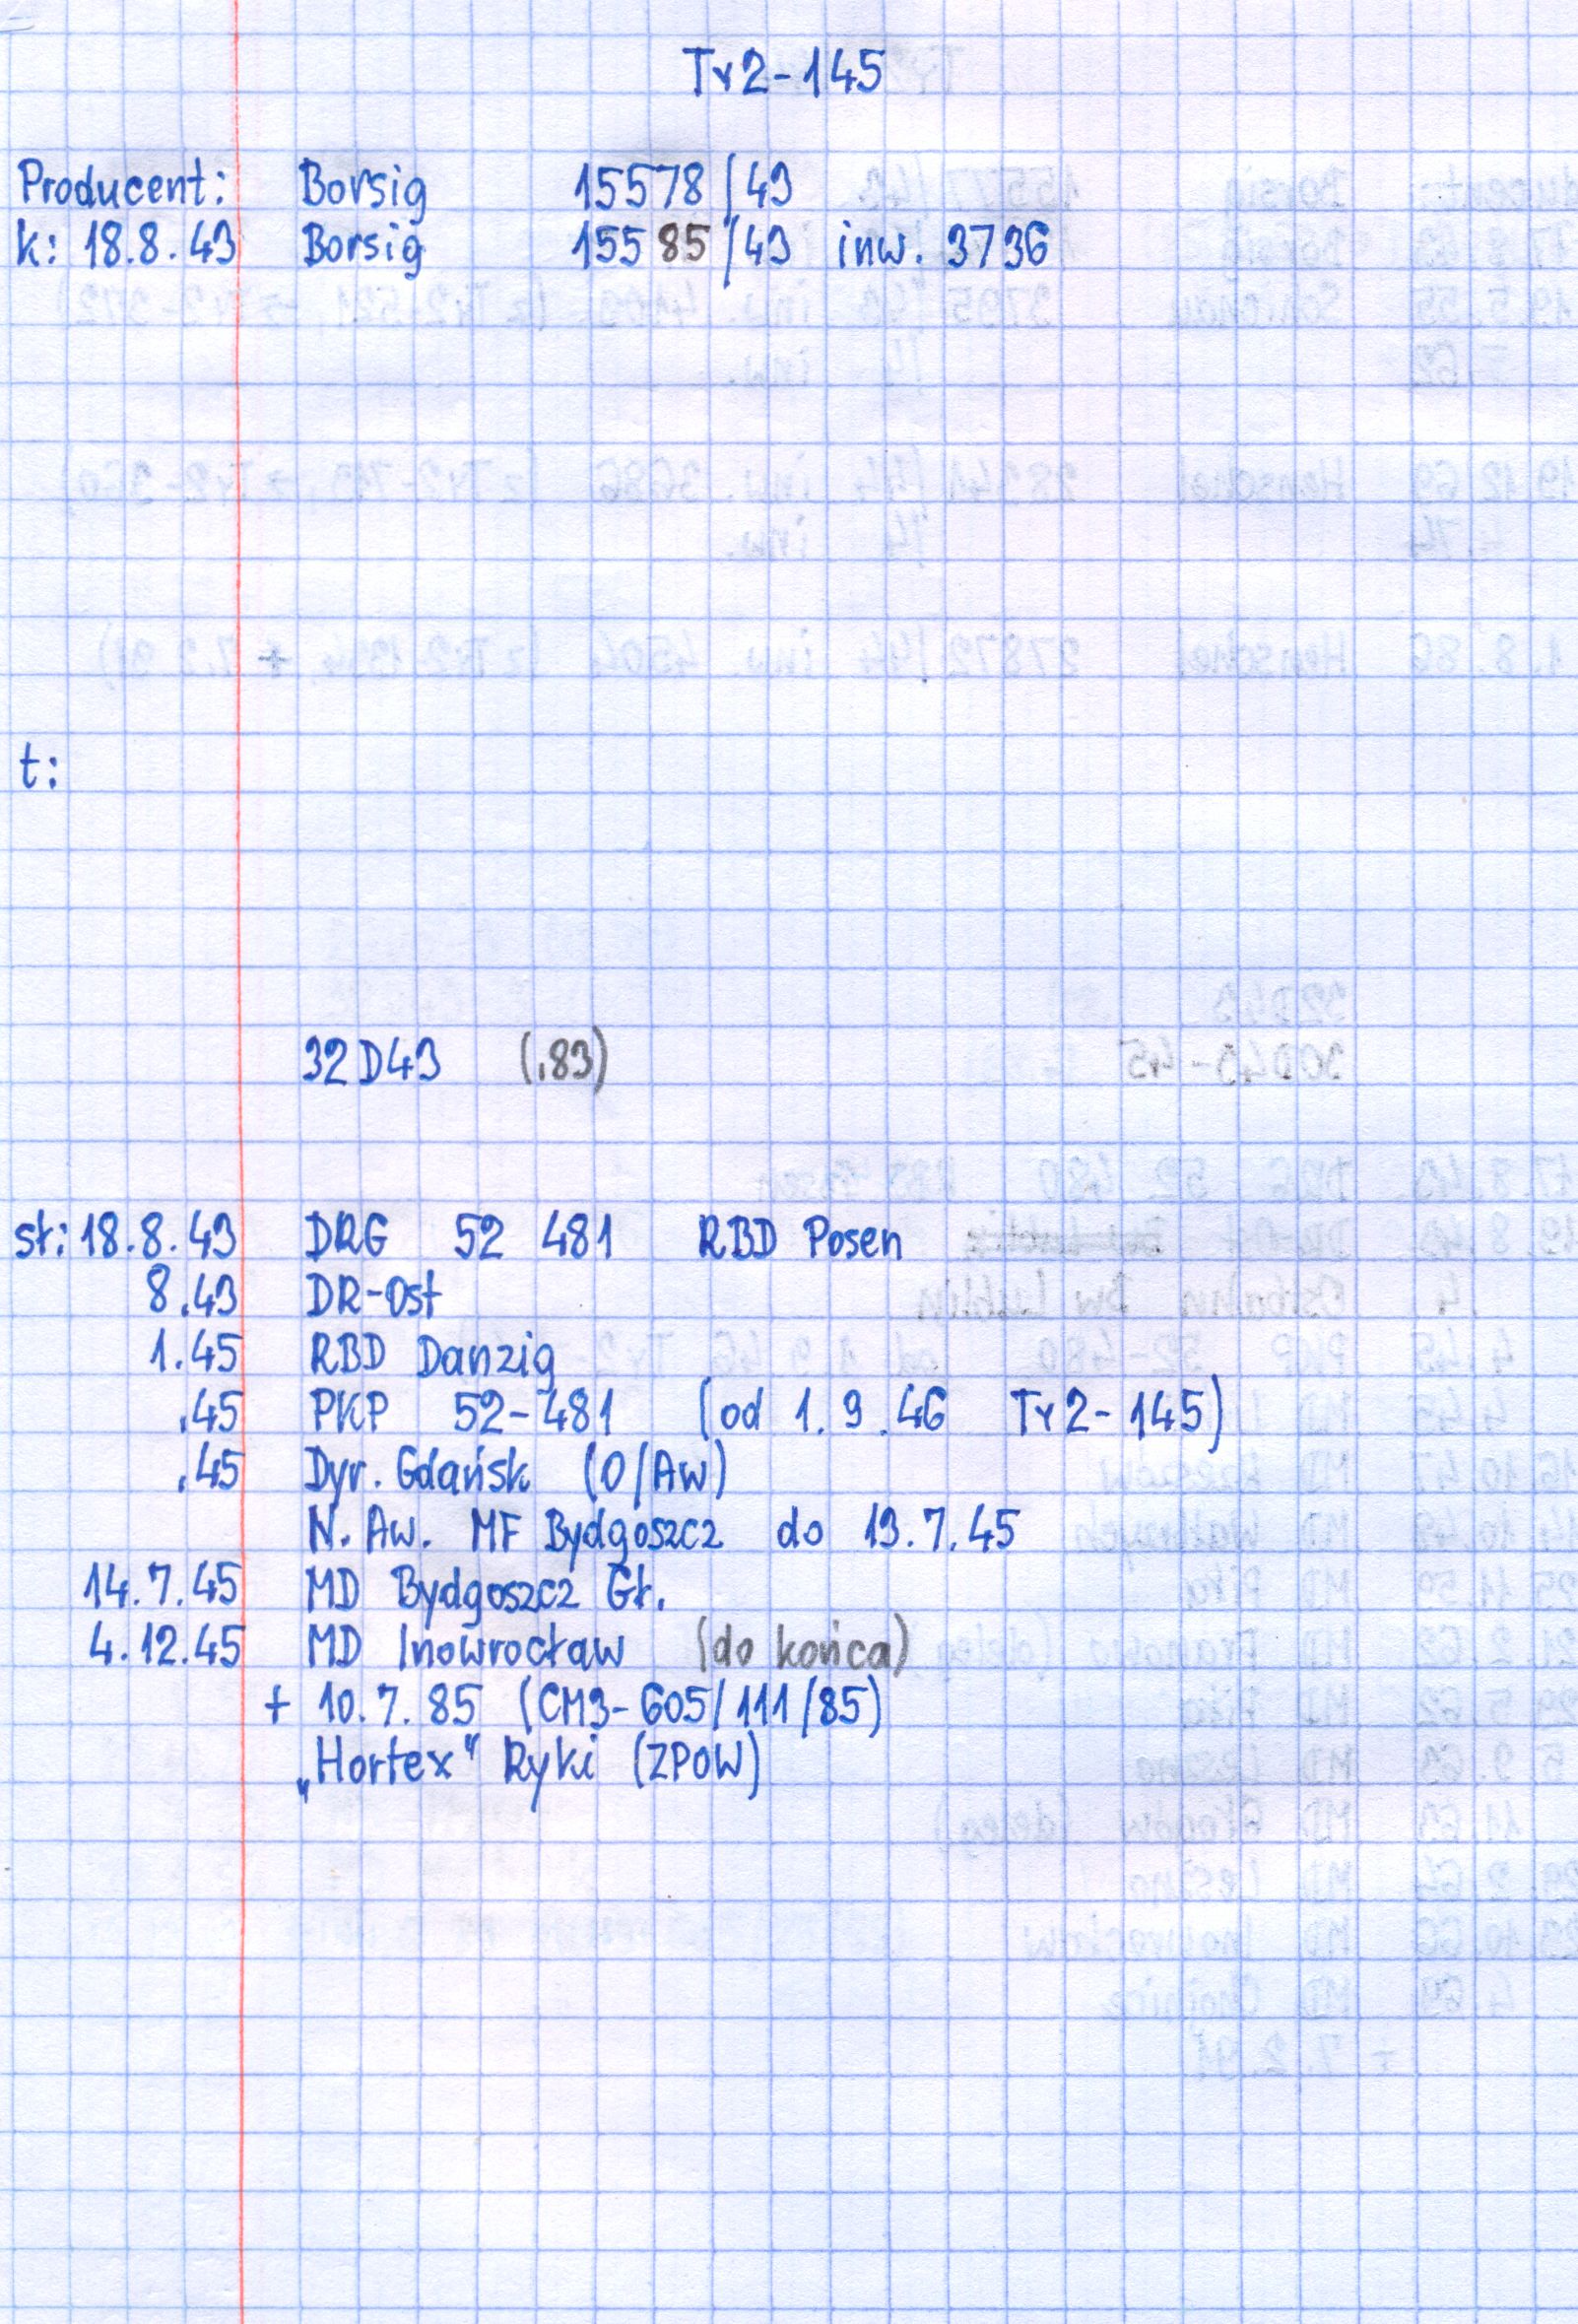 Tr2-145
Producent: Borsig 15578/43
k: 18.8.43 Borsig 15585/43 inw. 3736
t:
32D43 (.83)
st: 18.8.43 DRG 52 481 RBD Posen
8.43 DR-Ost
1.45 RBD Danzig
.45 PKP 52-481 (od 1.9.46 Tr2-145)
.45 Dyr. Gdańsk (O/Aw)
N. Aw. MF Bydgoszcz do 13.7.45
14.7.45 MD Bydgoszcz Gł.
4.12.45 MD Inowrocław (do końca)
+ 10.7.85 (CM3-605/111/85)
„Hortex" Ryki (ZPOW)